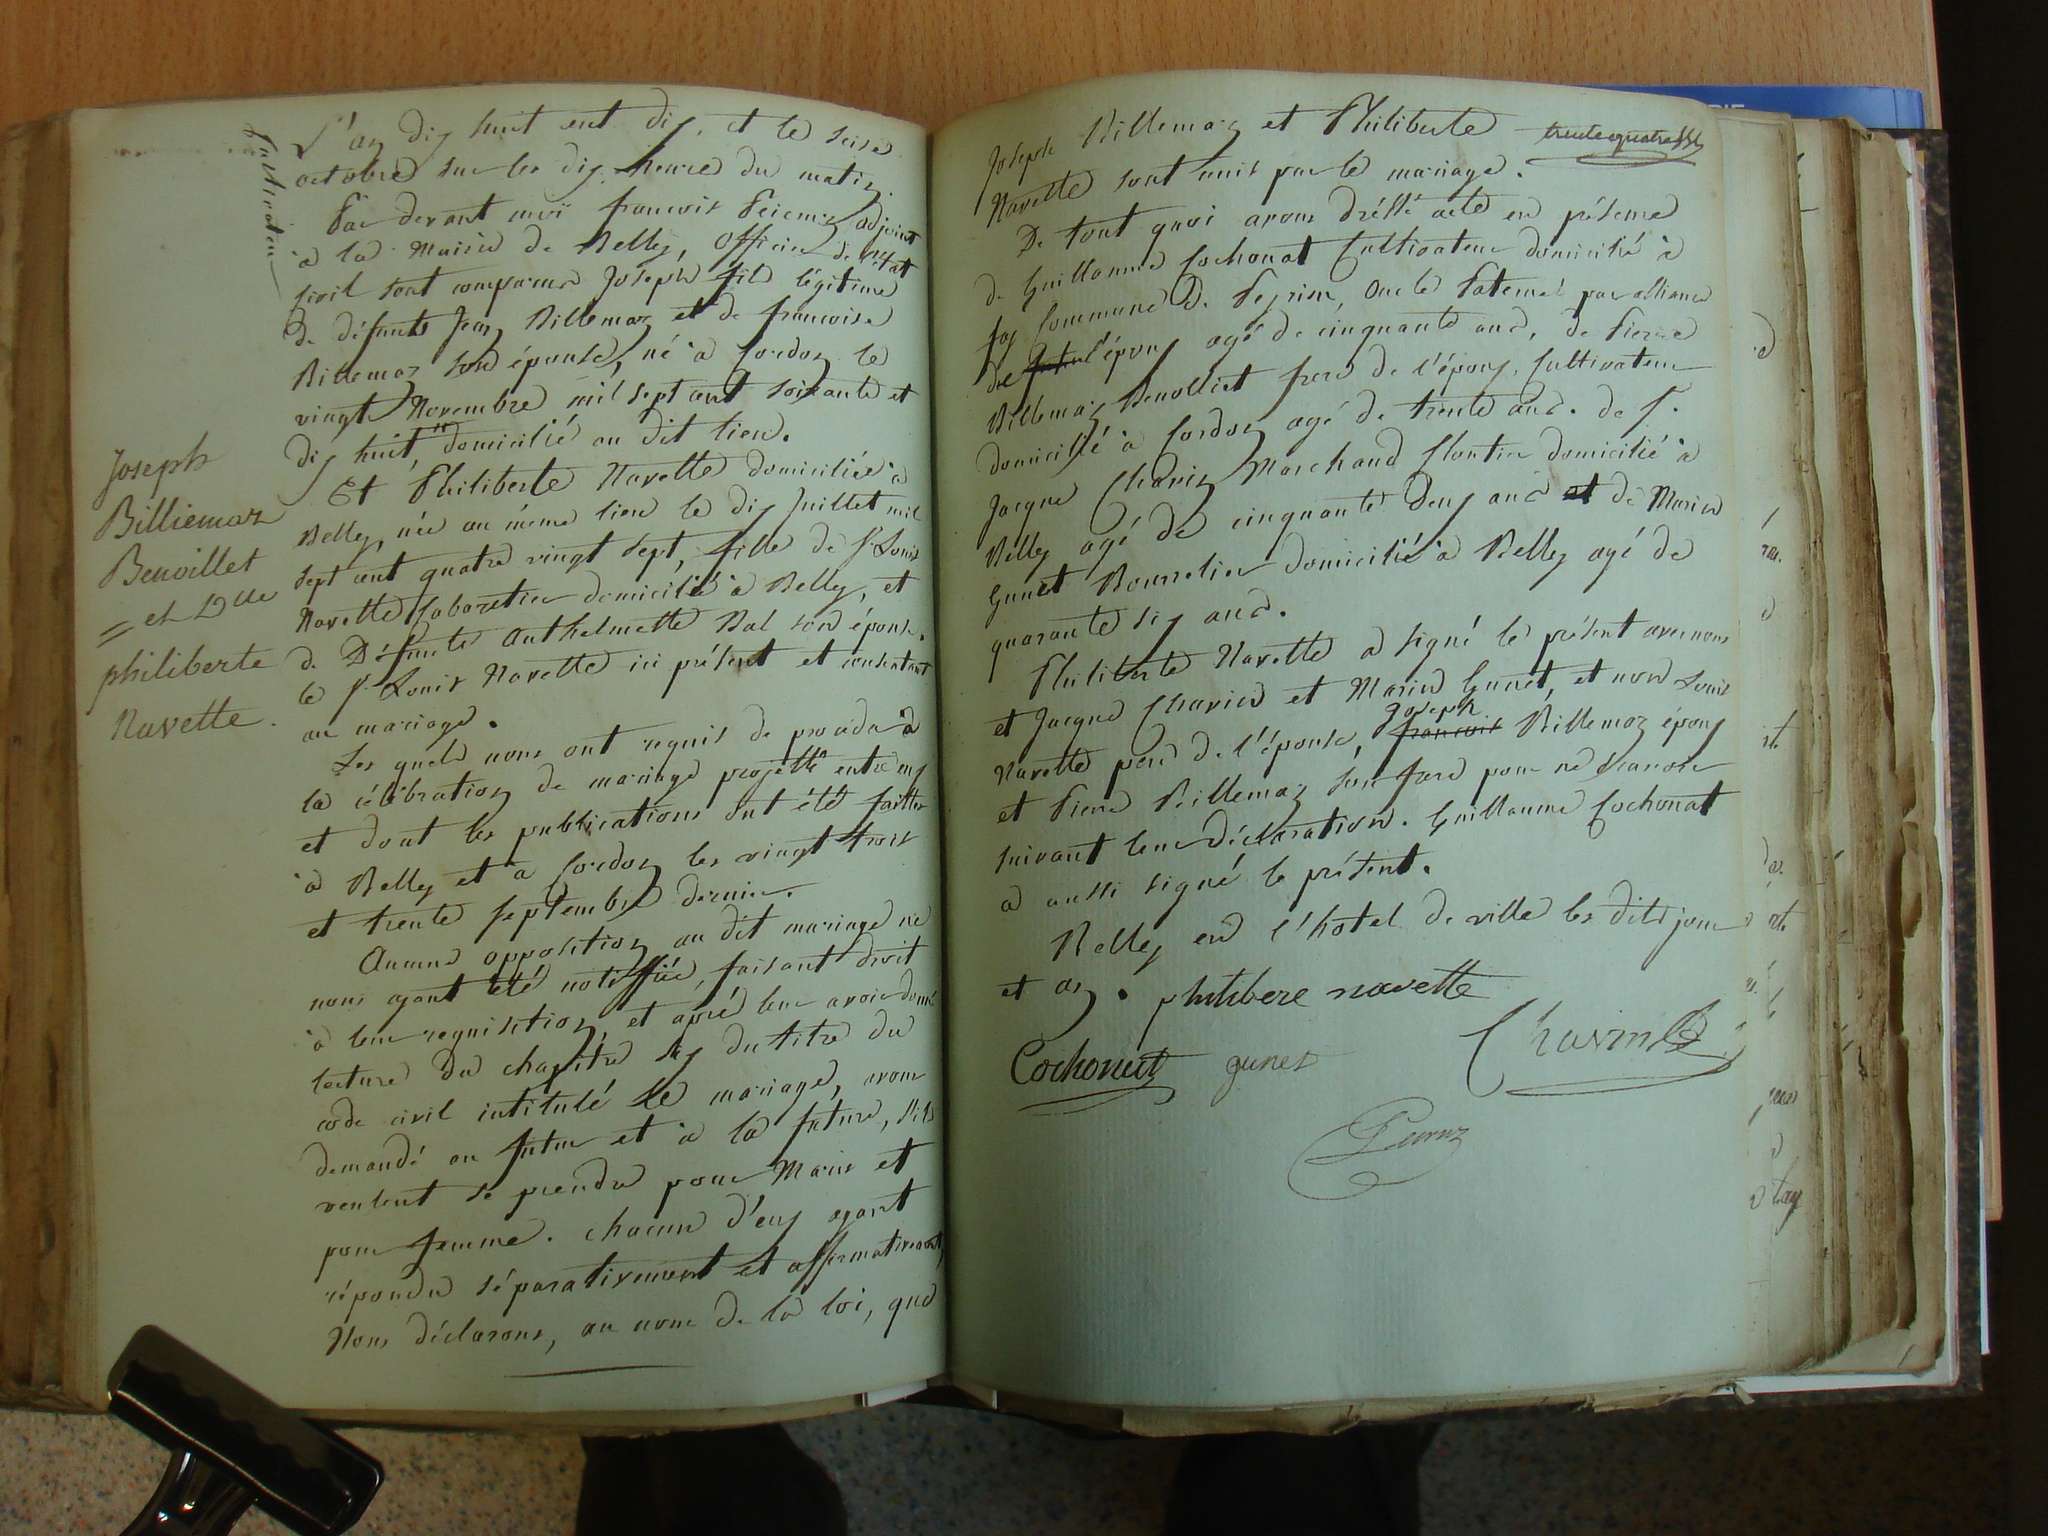 L'an dix huit cent dix, et le seise
octobre sur les dix heure du matin.
Par devant moi françois Peiernz adjoint
à la Mairie de Belley, Officier de l'état
civil sont comparus Joseph fils légitime
de défunts Jean Billemaz et de françoise
Billemaz son épouse, né à Cordon le
vingt Novembre mil sept cent soixante et
dix huit, domicilié au dit lieu.
cultivateur
Joseph
Billiemaz
Benoillet
et Dlle
philiberte
Navette.
Et Philiberte Navette domiciliée à
Belley, née au même lieu le dix Juillet mil
sept cent quatre vingt sept, fille de Sr. Louis
Navette Cabaretier domicilié à Belley, et
de Défunte Anthelmette Bal son épouse.
le Sr. Louis Navette ici présent et consentant
au mariage.
Les quels nous ont requis de procéder à
la célébration de mariage projetté entre eux
et dont les publications ont été faittes
à Belley et a Cordon les vingt trois
et trente septembre dernier.
Aucune opposition au dit mariage ne
nous ayant été notiffiée, faisant droit
à leur requisition, et après leur avoir donné
lecture du chapitre six du titre du
code civil intitulé le mariage, avons
demandé au futur et à la future, s'ils
veulent se prendre pour Maris et
pour femme. chacun d'eux ayant
répondu séparativement et affirmativement,
Nous déclarons, au nom de la loi, que
trente quatre
Joseph Billemaz et Philiberte
Navette sont unis par le mariage.
De tout quoi avons dréssé acte en présence
de Guillaume Cochonat Cultivateur domicilié à
fay Commune de Peyrieu, Oncle Paternel par alliance
de l'époux agé de cinquante ans, de Pierre
Billemaz Benollict frere de l'époux, Cultivateur
domicilié à Cordon agé de trente ans. de Sr.
Jacque Chavin Marchand domicilié à
Belley agé de cinquante deux ans et de Marin
Gunet Bourrelier domicilié à Belley agé de
quarante six ans.
Philiberte Navette a signé le présent avec nous
et Jacque Chavin et Marin Gunet, et non Louis
Navette pere de l'épouse, françois Joseph Billemaz époux
et Pierre Billemaz son frere pour ne savoir
suivant leur déclaration. Guillaume Cochonat
a aussi signé le présent.
Belley en l'hotel de ville les dits jour
et an. philibere navette
Cochonat gunet Chavin